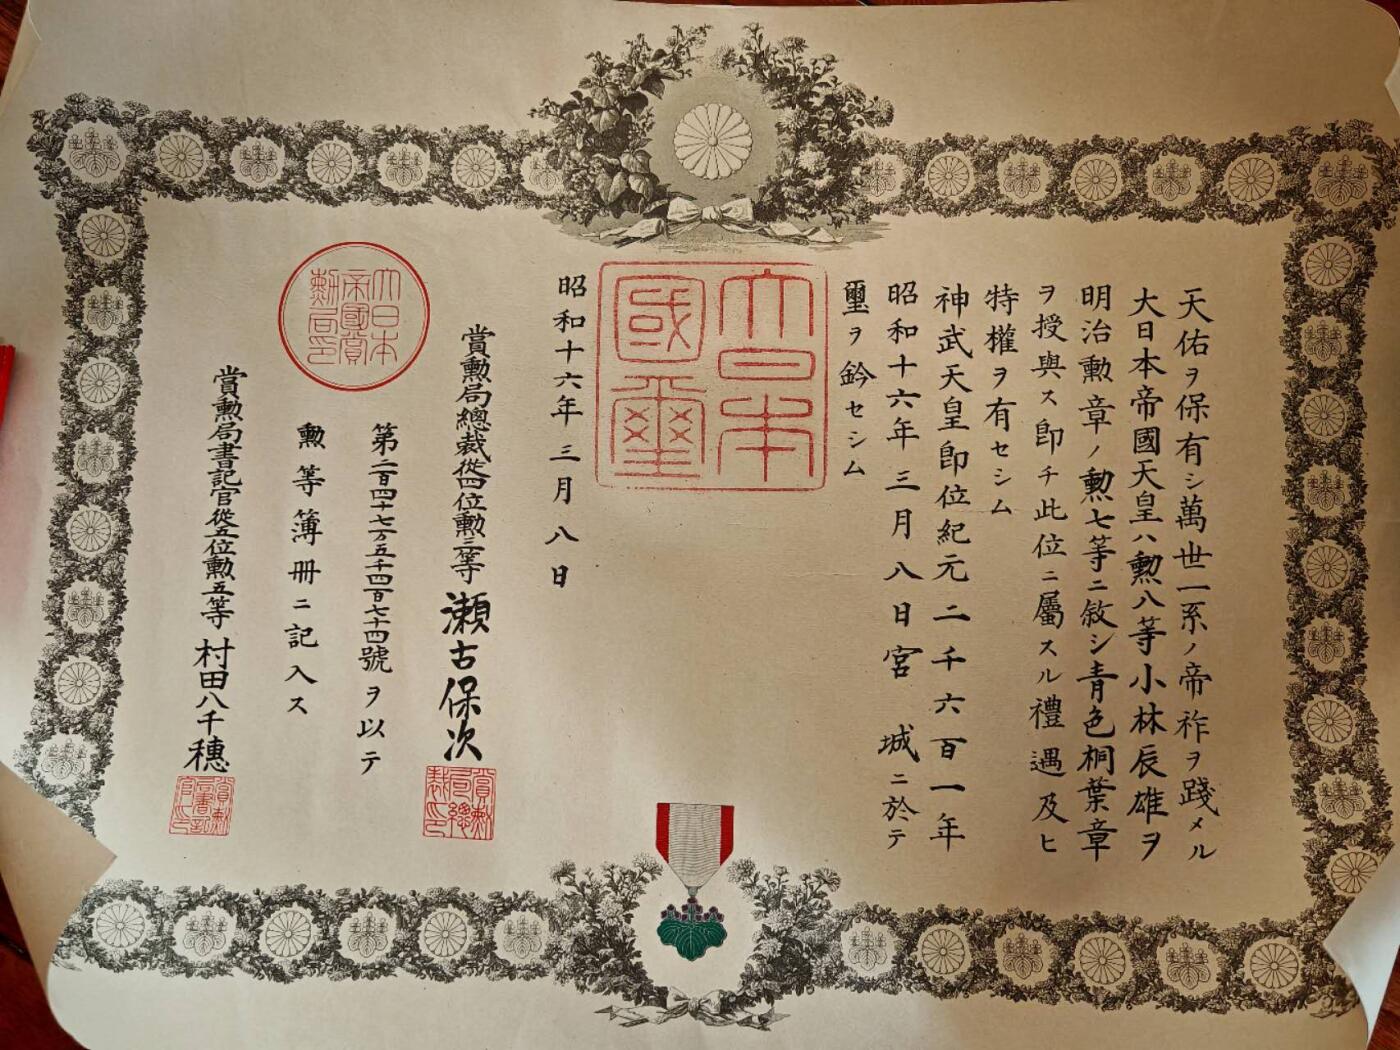 天佑ヲ保有シ萬世一系ノ帝祚ヲ踐メル
大日本帝國天皇ハ勲八等小林辰雄ヲ
明治勲章ノ勲七等ニ敘シ青色桐葉章
ヲ授與ス即チ此位ニ屬スル禮遇及ヒ
特權ヲ有セシム
神武天皇即位紀元二千六百一年
昭和十六年三月八日宮城ニ於テ
璽ヲ鈐セシム
大日本
國璽
昭和十六年三月八日
賞勲局總裁從四位勲三等瀬古保次
賞勲局總裁印
第二百四十七万五千四百七十四號ヲ以テ
勲等簿冊ニ記入ス
大日本
帝國賞
勲局印
賞勲局書記官從五位勲五等村田八千穗
賞勲局書記官印